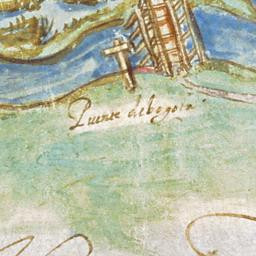 Puente de bogota